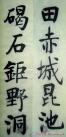 田赤城昆池
碣石鉅野洞